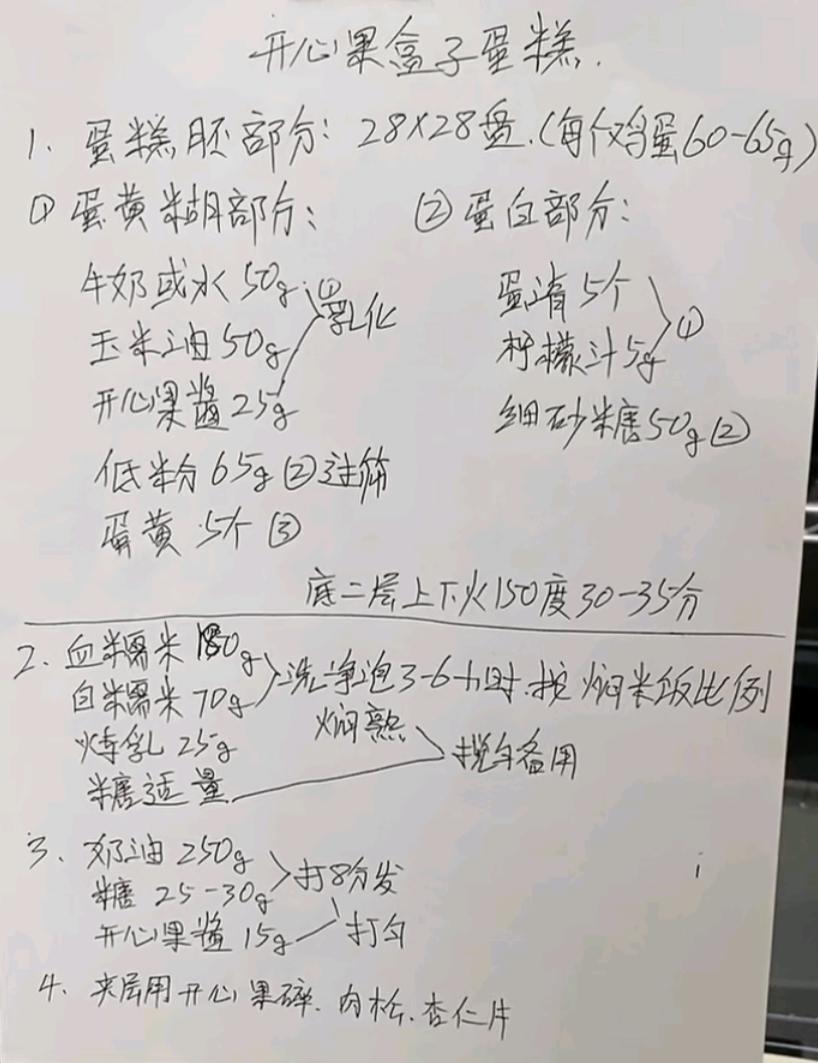 开心果盒子蛋糕.
1. 蛋糕胚部分: 28×28盘.(每个鸡蛋60-65g)
① 蛋黄糊部分:
牛奶或水50g ①乳化
玉米油50g
开心果酱25g
低粉65g ②过筛
蛋黄5个 ③
② 蛋白部分:
蛋清5个 ①
柠檬汁5g
细砂糖50g ②
底二层上下火150度30-35分
2. 血糯米180g 洗净泡3-6小时.按焖米饭比例
白糯米70g 焖熟
炼乳25g 搅匀备用
糖适量
3. 奶油250g 打8分发
糖25-30g
开心果酱15g 打匀
4. 夹层用开心果碎.肉松.杏仁片